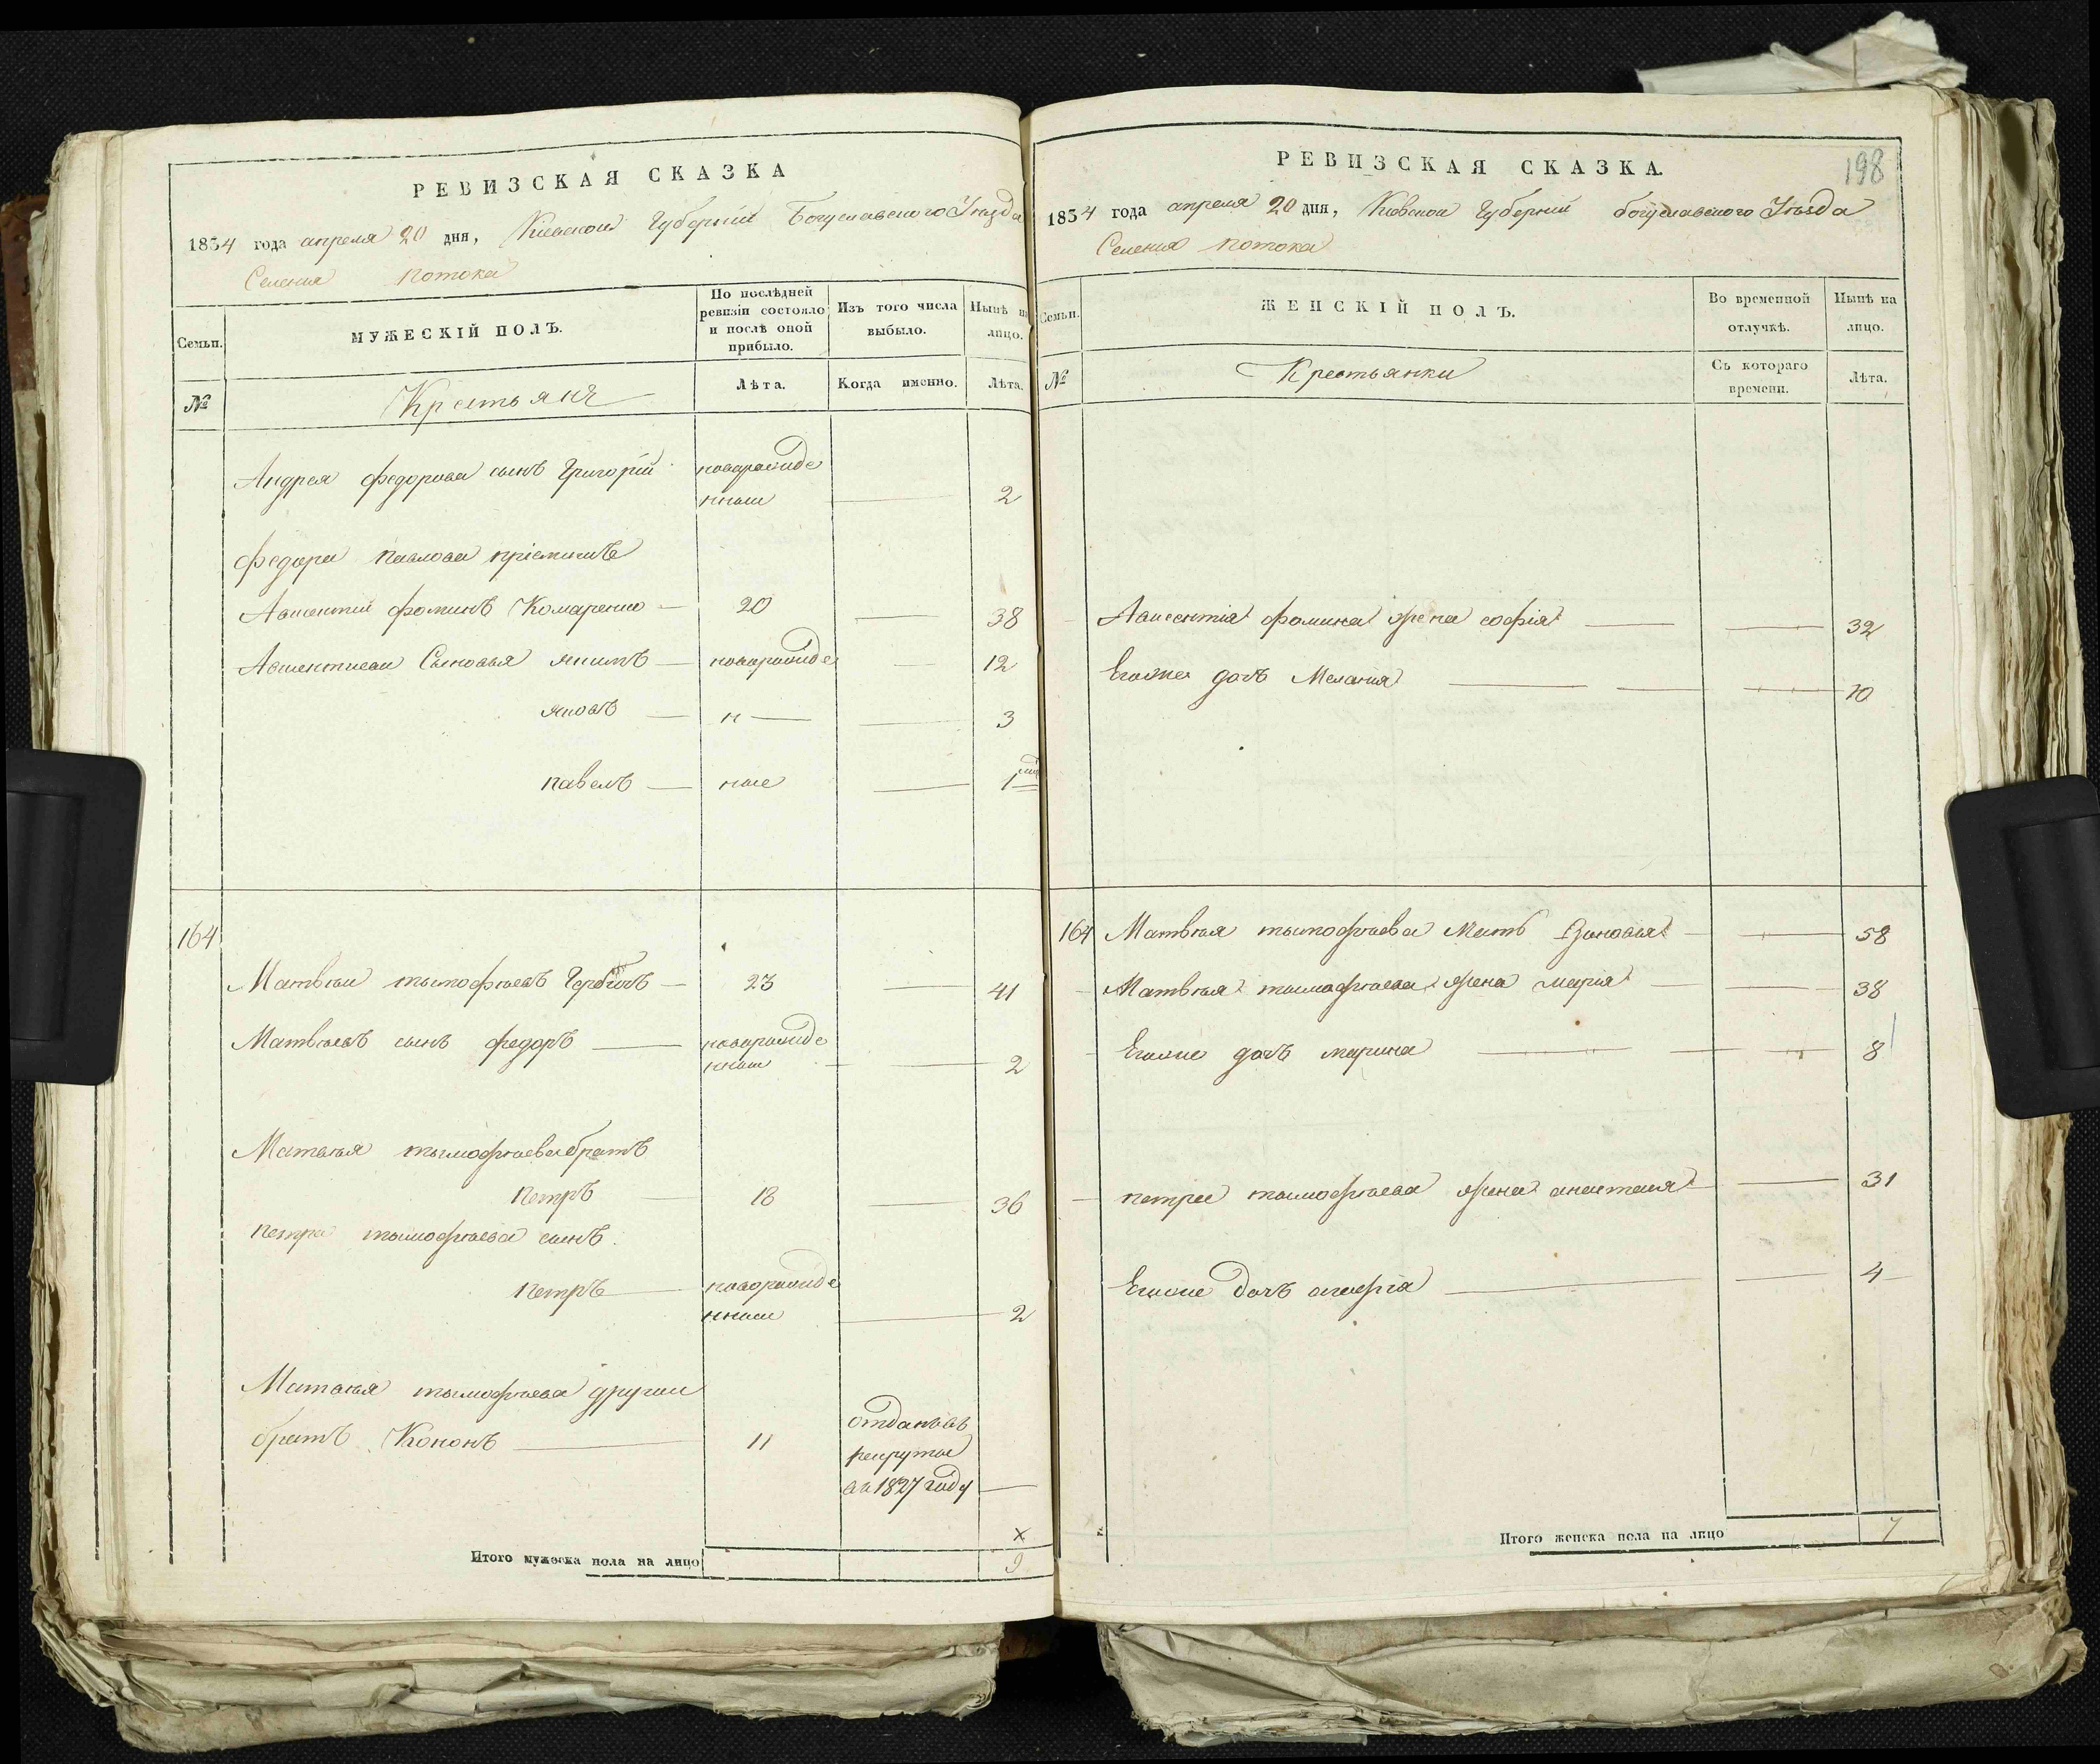 РЕВИЗСКАЯ СКАЗКА
1834 года апреля 20 дня, Киевской Губерніи Богуславского Уезда
Селения Потока
Семьи.
МУЖЕСКІЙ ПОЛЪ.
По послѣдней ревизіи состояло и послѣ оной прибыло.
Изъ того числа выбыло.
Нынѣ на лицо.
№
Крестьяне
Лѣта.
Когда именно.
Лѣта.
Андрея федорова сынъ Григорій новорожде
нный 2
федора павлова пріемышъ
Авксентий фоминъ Комаренко 20 38
Авксентиевы Сыновья якимъ новорожде 12
яковъ н 3
павелъ ные 1
164
Матвѣй тымофѣевъ 23 41
Матвѣевъ сынъ федоръ новорожде
нный 2
Матвѣя тымофѣева братъ
петръ 18 36
петра тымофѣева сынъ
петръ новорожде
нный 2
Матвѣя тымофѣева другий
братъ Кононъ 11 отданъ въ
рекруты
въ 1827 году
х
Итого мужеска пола на лицо 9
РЕВИЗСКАЯ СКАЗКА.
198
1834 года апреля 20 дня, Киевской Губерніи богуславского Уезда
Селения потока
Семьи.
ЖЕНСКІЙ ПОЛЪ.
Во временной отлучкѣ.
Нынѣ на лицо.
№
Крестьянки
Съ котораго времени.
Лѣта.
Авксентія фомина жена софія 32
Егоже дочъ Мелания 10
164 Матвѣя тымофѣева Мать Зиновья 58
Матвѣя тымофѣева жена марія 38
Егоже дочъ марина 8
петра тымофѣева жена анастасия 31
Егоже дочъ агафия 4
Итого женска пола на лицо 7